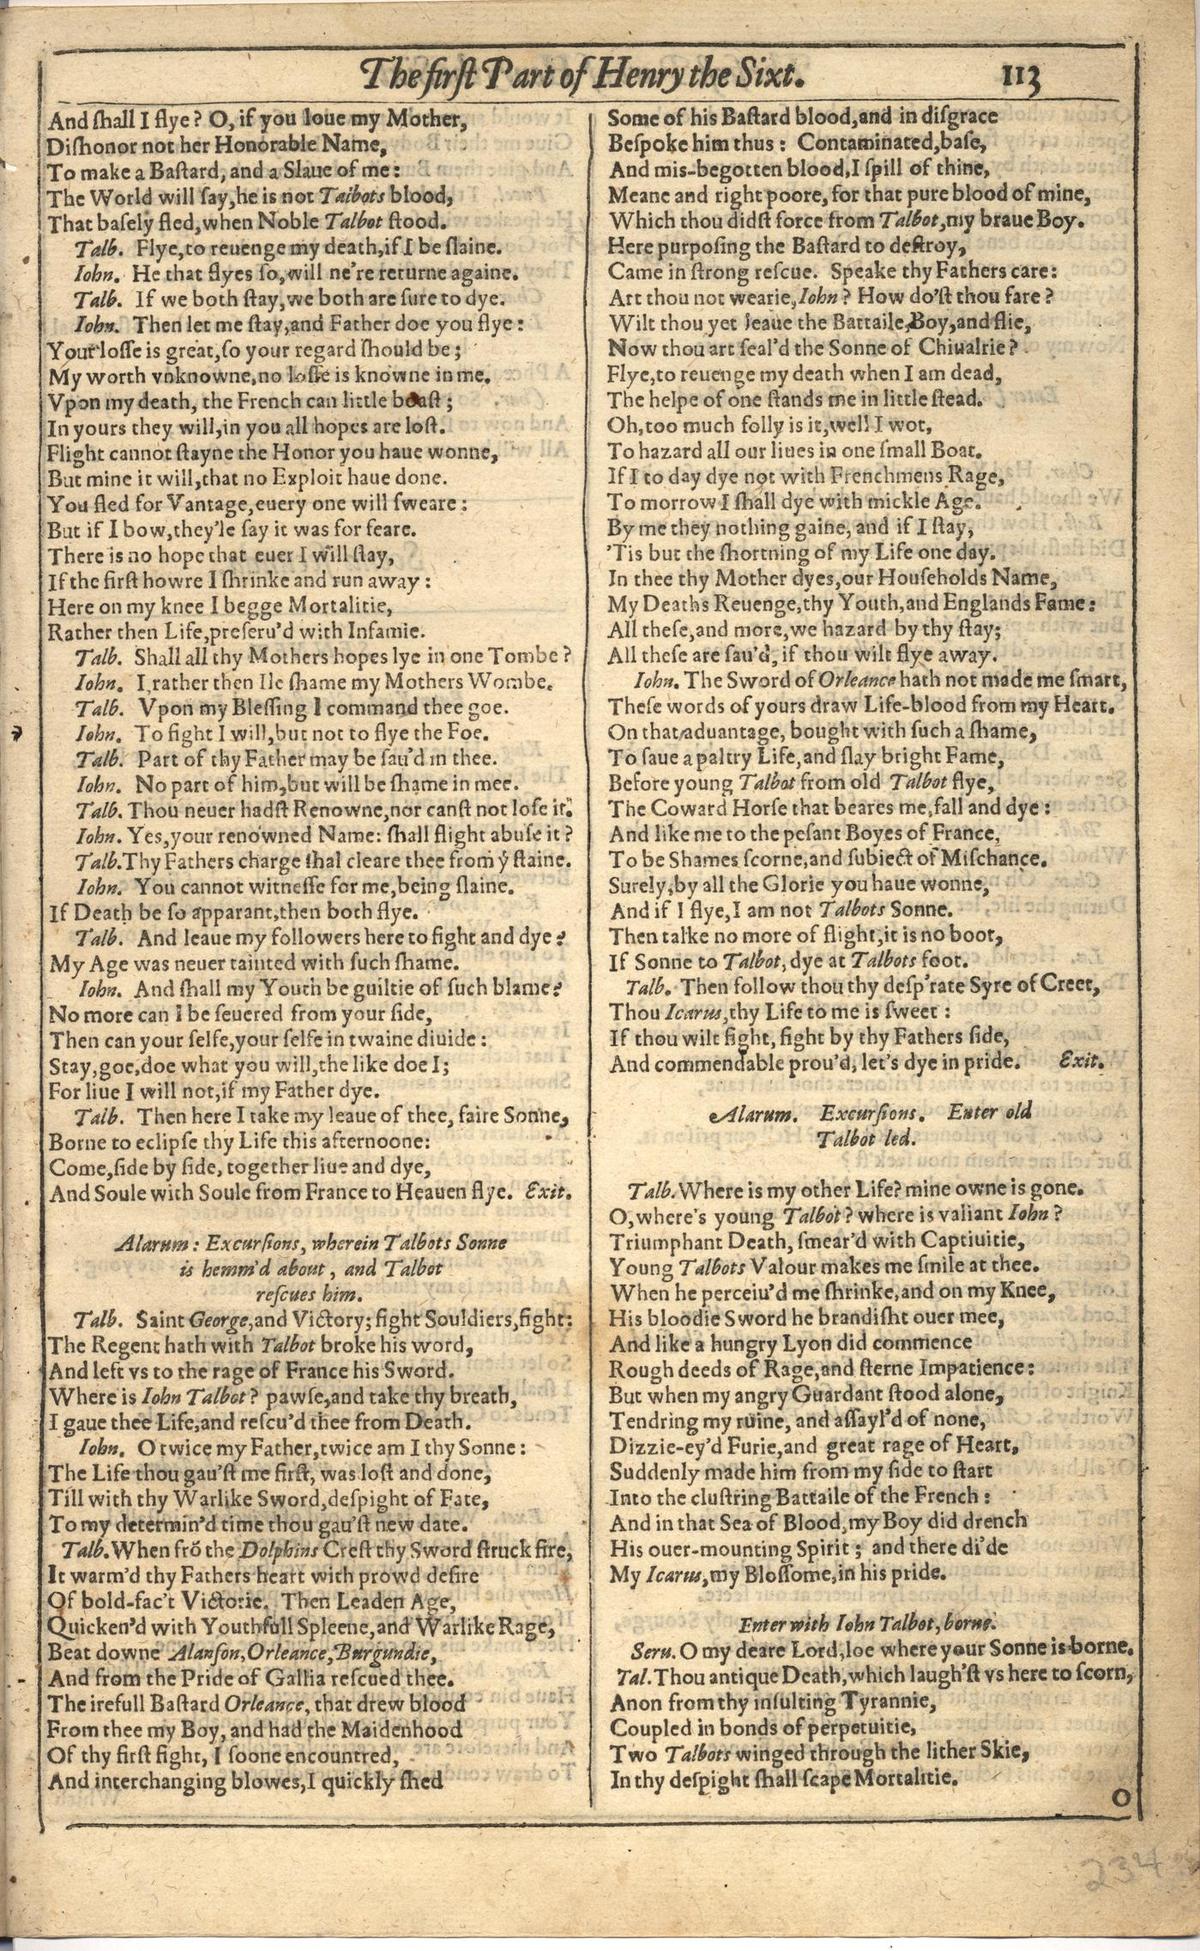 The first Part of Henry the Sixt. 113
And shall I flye? O, if you loue my Mother,
Dishonor not her Honorable Name,
To make a Bastard, and a Slaue of me:
The World will say, he is not Talbots blood,
That basely fled, when Noble Talbot stood.
Talb. Flye, to reuenge my death, if I be slaine.
Iohn. He that flyes so, will ne're returne againe.
Talb. If we both stay, we both are sure to dye.
Iohn. Then let me stay, and Father doe you flye:
Your losse is great, so your regard should be;
My worth vnknowne, no losse is knowne in me.
Vpon my death, the French can little boast;
In yours they will, in you all hopes are lost.
Flight cannot stayne the Honor you haue wonne,
But mine it will, that no Exploit haue done.
You fled for Vantage, euery one will sweare:
But if I bow, they'le say it was for feare.
There is no hope that euer I will stay,
If the first howre I shrinke and run away:
Here on my knee I begge Mortalitie,
Rather then Life, preseru'd with Infamie.
Talb. Shall all thy Mothers hopes lye in one Tombe?
Iohn. I, rather then Ile shame my Mothers Wombe.
Talb. Vpon my Blessing I command thee goe.
Iohn. To fight I will, but not to flye the Foe.
Talb. Part of thy Father may be sau'd in thee.
Iohn. No part of him, but will be shame in mee.
Talb. Thou neuer hadst Renowne, nor canst not lose it.
Iohn. Yes, your renowned Name: shall flight abuse it?
Talb. Thy Fathers charge shal cleare thee from ẏ staine.
Iohn. You cannot witnesse for me, being slaine.
If Death be so apparant, then both flye.
Talb. And leaue my followers here to fight and dye?
My Age was neuer tainted with such shame.
Iohn. And shall my Youth be guiltie of such blame?
No more can I be seuered from your side,
Then can your selfe, your selfe in twaine diuide:
Stay, goe, doe what you will, the like doe I;
For liue I will not, if my Father dye.
Talb. Then here I take my leaue of thee, faire Sonne,
Borne to eclipse thy Life this afternoone:
Come, side by side, together liue and dye,
And Soule with Soule from France to Heauen flye. Exit.
Alarum: Excursions, wherein Talbots Sonne
is hemm'd about, and Talbot
rescues him.
Talb. Saint George, and Victory; fight Souldiers, fight:
The Regent hath with Talbot broke his word,
And left vs to the rage of France his Sword.
Where is Iohn Talbot? pawse, and take thy breath,
I gaue thee Life, and rescu'd thee from Death.
Iohn. O twice my Father, twice am I thy Sonne:
The Life thou gau'st me first, was lost and done,
Till with thy Warlike Sword, despight of Fate,
To my determin'd time thou gau'st new date.
Talb. When frõ the Dolphins Crest thy Sword struck fire,
It warm'd thy Fathers heart with prowd desire
Of bold-fac't Victorie. Then Leaden Age,
Quicken'd with Youthfull Spleene, and Warlike Rage,
Beat downe Alanson, Orleance, Burgundie,
And from the Pride of Gallia rescued thee.
The irefull Bastard Orleance, that drew blood
From thee my Boy, and had the Maidenhood
Of thy first fight, I soone encountred,
And interchanging blowes, I quickly shed
Some of his Bastard blood, and in disgrace
Bespoke him thus: Contaminated, base,
And mis-begotten blood, I spill of thine,
Meane and right poore, for that pure blood of mine,
Which thou didst force from Talbot, my braue Boy.
Here purposing the Bastard to destroy,
Came in strong rescue. Speake thy Fathers care:
Art thou not wearie, Iohn? How do'st thou fare?
Wilt thou yet leaue the Battaile, Boy, and flie,
Now thou art seal'd the Sonne of Chiualrie?
Flye, to reuenge my death when I am dead,
The helpe of one stands me in little stead.
Oh, too much folly is it, well I wot,
To hazard all our liues in one small Boat.
If I to day dye not with Frenchmens Rage,
To morrow I shall dye with mickle Age.
By me they nothing gaine, and if I stay,
'Tis but the shortning of my Life one day.
In thee thy Mother dyes, our Households Name,
My Deaths Reuenge, thy Youth, and Englands Fame:
All these, and more, we hazard by thy stay;
All these are sau'd, if thou wilt flye away.
Iohn. The Sword of Orleance hath not made me smart,
These words of yours draw Life-blood from my Heart.
On that aduantage, bought with such a shame,
To saue a paltry Life, and slay bright Fame,
Before young Talbot from old Talbot flye,
The Coward Horse that beares me, fall and dye:
And like me to the pesant Boyes of France,
To be Shames scorne, and subiect of Mischance.
Surely, by all the Glorie you haue wonne,
And if I flye, I am not Talbots Sonne.
Then talke no more of flight, it is no boot,
If Sonne to Talbot, dye at Talbots foot.
Talb. Then follow thou thy desp'rate Syre of Creet,
Thou Icarus, thy Life to me is sweet:
If thou wilt fight, fight by thy Fathers side,
And commendable prou'd, let's dye in pride. Exit.
Alarum. Excursions. Enter old
Talbot led.
Talb. Where is my other Life? mine owne is gone.
O, where's young Talbot? where is valiant Iohn?
Triumphant Death, smear'd with Captiuitie,
Young Talbots Valour makes me smile at thee.
When he perceiu'd me shrinke, and on my Knee,
His bloodie Sword he brandisht ouer mee,
And like a hungry Lyon did commence
Rough deeds of Rage, and sterne Impatience:
But when my angry Guardant stood alone,
Tendring my ruine, and assayl'd of none,
Dizzie-ey'd Furie, and great rage of Heart,
Suddenly made him from my side to start
Into the clustring Battaile of the French:
And in that Sea of Blood, my Boy did drench
His ouer-mounting Spirit; and there di'de
My Icarus, my Blossome, in his pride.
Enter with Iohn Talbot, borne.
Seru. O my deare Lord, loe where your Sonne is borne.
Tal. Thou antique Death, which laugh'st vs here to scorn,
Anon from thy insulting Tyrannie,
Coupled in bonds of perpetuitie,
Two Talbots winged through the lither Skie,
In thy despight shall scape Mortalitie.
O
234